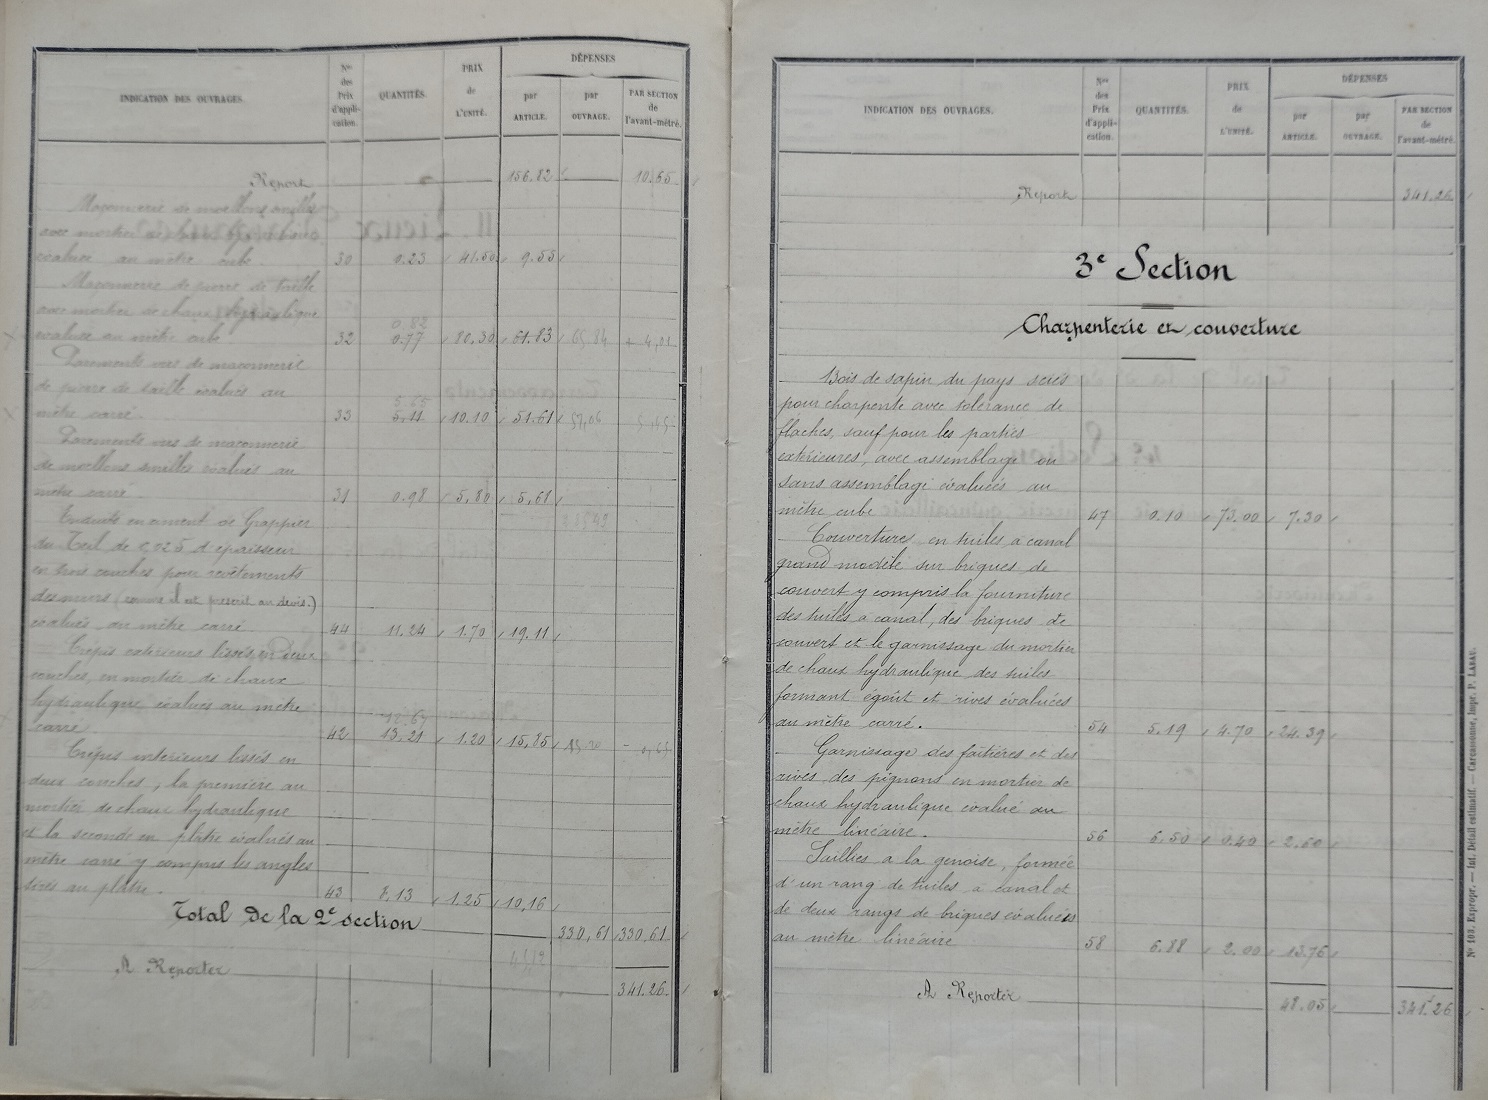 INDICATION DES OUVRAGES.
Nos des Prix d'appli- cation.
QUANTITÉS.
PRIX de L'UNITÉ.
DÉPENSES
par ARTICLE.
par OUVRAGE.
PAR SECTION de l'avant-métré.
Report 156.82 10.65
Maçonnerie de moellons smillés
avec mortier de chaux hydraulique
évaluée au mètre cube. 30 0.23 41.50 9.55
Maçonnerie de pierre de taille
avec mortier de chaux hydraulique
0.82
évaluée au mètre cube 32 0.77 80.30 61.83 65.84 + 4,01
Parements vus de maçonnerie
de pierre de taille évalués au
5.65
mètre carré. 33 5.11 10.10 51.61 57,06
Parements vus de maçonnerie
de moellons smillés évalués au
mètre carré 31 0.98 5.80 5.68
Enduits en ciment de Grappier
du Teil de 0,025 d'épaisseur
en trois couches pour revêtements
des murs (comme il est prescrit au devis.)
évalués au mètre carré 44 11.24 1.70 19.11
Crépis extérieurs lissés en deux
couches, en mortier de chaux
hydraulique, évalués au mètre
carré. 42 13.21 1.20 15,85
Crépis intérieurs lissés en
deux couches, la première au
mortier de chaux hydraulique
et la seconde en plâtre évalués au
mètre carré y compris les angles
tirés au plâtre. 43 8.13 1.25 10,16
Total de la 2e section 330,61 330,61
A Reporter 341.26
INDICATION DES OUVRAGES.
Nos des Prix d'appli- cation.
QUANTITÉS.
PRIX de L'UNITÉ.
DÉPENSES
par ARTICLE.
par OUVRAGE.
PAR SECTION de l'avant-métré.
Report 341.26
3e Section
Charpenterie et couverture
Bois de sapin du pays secs
pour charpente avec tolérance de
flaches, sauf pour les parties
extérieures, avec assemblage ou
sans assemblage évaluées au
mètre cube 47 0.10 73.00 7.30
Couverture en tuiles à canal
grand modèle sur briques de
couvert y compris la fourniture
des tuiles à canal, des briques de
couvert et le garnissage du mortier
de chaux hydraulique des tuiles
formant égoût et rives évaluées
au mètre carré. 54 5.19 4.70 24.39
Garnissage des faîtières et des
rives des pignons en mortier de
chaux hydraulique évalué au
mètre linéaire. 56 6.50 0.40 2.60
Saillies à la genoise, formée
d'un rang de tuiles à canal et
de deux rangs de briques évaluées
au mètre linéaire 58 6.88 2.00 13.76
A Reporter 48.05 341.26
No 103. Expropr. — Int. Détail estimatif. — Carcassonne, Impr. P. LABAU.